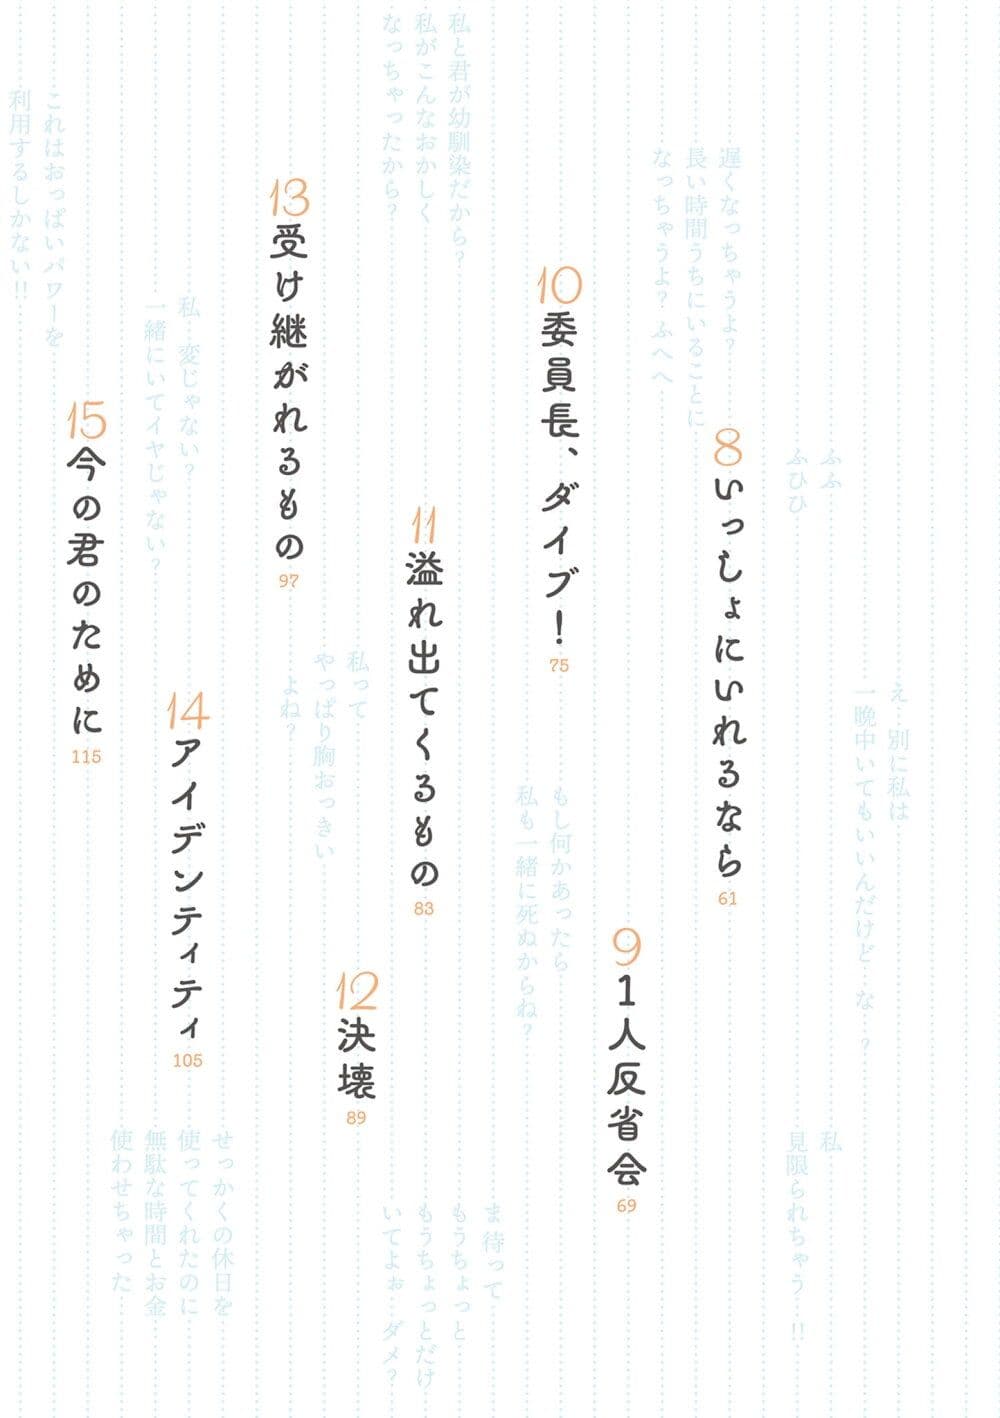 え 別に私は
一晩中いてもいいんだけど な ?
ふふ
ふひひ
私
見限られちゃう !!
8
いっしょにいれるなら
61
遅くなっちゃうよ?
長い時間うちにいることに
なっちゃうよ? ふへへ
9
1人反省会
69
10
委員長、ダイブ!
75
もし何かあったら
私も一緒に死ぬからね?
私と君が幼馴染だから?
私がこんなおかしく
なっちゃったから?
11
溢れ出てくるもの
83
ま 待って
もうちょっと
もうちょっとだけ
いてよぉ ダメ?
12
決壊
89
私って
やっぱり胸おっきい
よね?
13
受け継がれるもの
97
私 変じゃない?
一緒にいてイヤじゃない?
14
アイデンティティ
105
せっかくの休日を
使ってくれたのに
無駄な時間とお金
使わせちゃった
15
今の君のために
115
これはおっぱいパワーを
利用するしかない!!